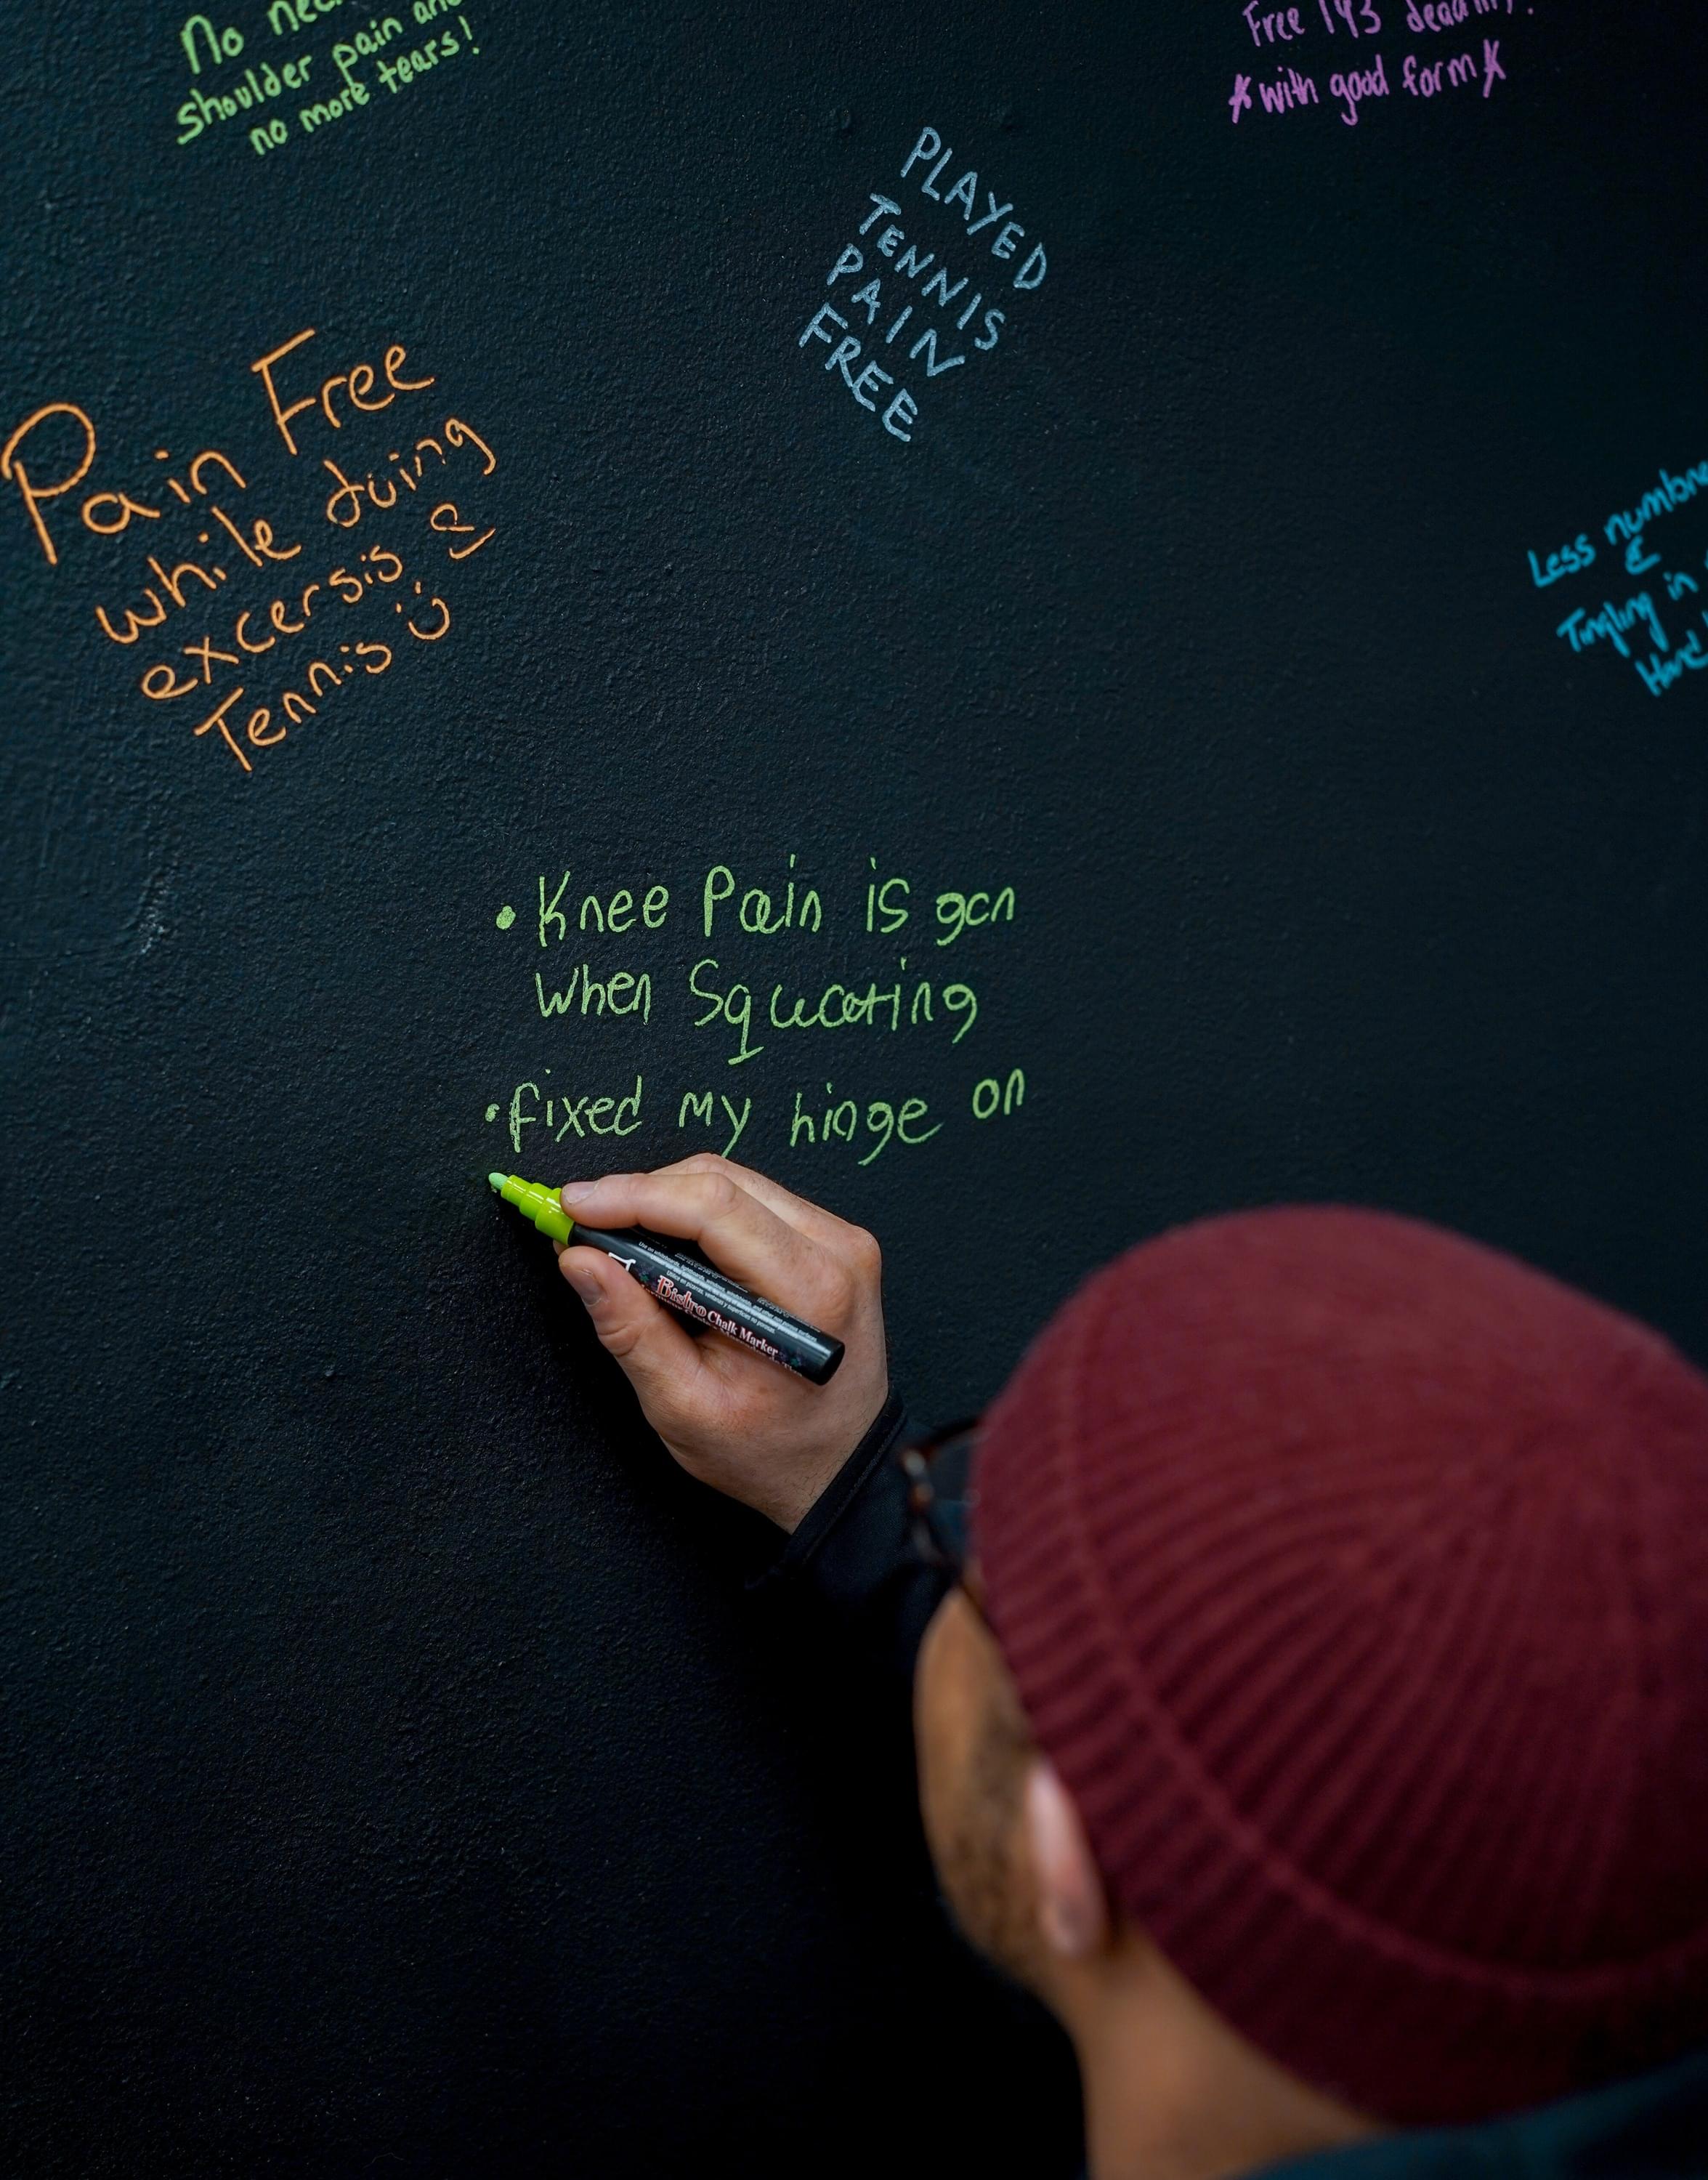 No
shoulder pain and
no more tears!
Free 143
*with good form*
PLAYED
TENNIS
PAIN
FREE
Pain Free
while doing
excersis, &
Tennis
Less
&
Tingling in
Hand
• Knee Pain is gon
when Squating
• fixed my hinge on
Bistro Chalk Marker